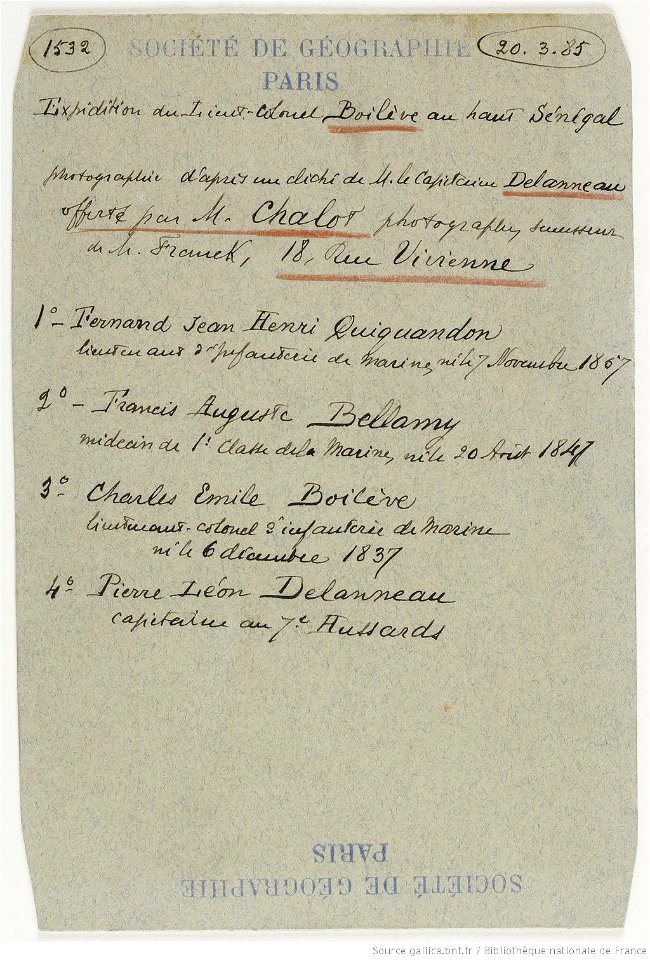 1532
20.3.85
SOCIÉTÉ DE GÉOGRAPHIE
PARIS
Expédition du Lieut-Colonel Boilève au haut Sénégal
photographie d'après un cliché de M. le Capitaine Delanneau
offerte par M. Chalot photographe, successeur
de M. Franck, 18, Rue Vivienne
1º - Fernand Jean Henri Quiquandon
lieutenant d'Infanterie de Marine, né le 7 Novembre 1857
2º - Francis Auguste Bellamy
médecin de 1e Classe de la Marine, né le 20 Août 1847
3º - Charles Emile Boilève
lieutenant-colonel d'infanterie de Marine
né le 6 décembre 1837
4º - Pierre Léon Delanneau
capitaine au 7e Hussards
SOCIÉTÉ DE GÉOGRAPHIE
PARIS
Source gallica.bnf.fr / Bibliothèque nationale de France